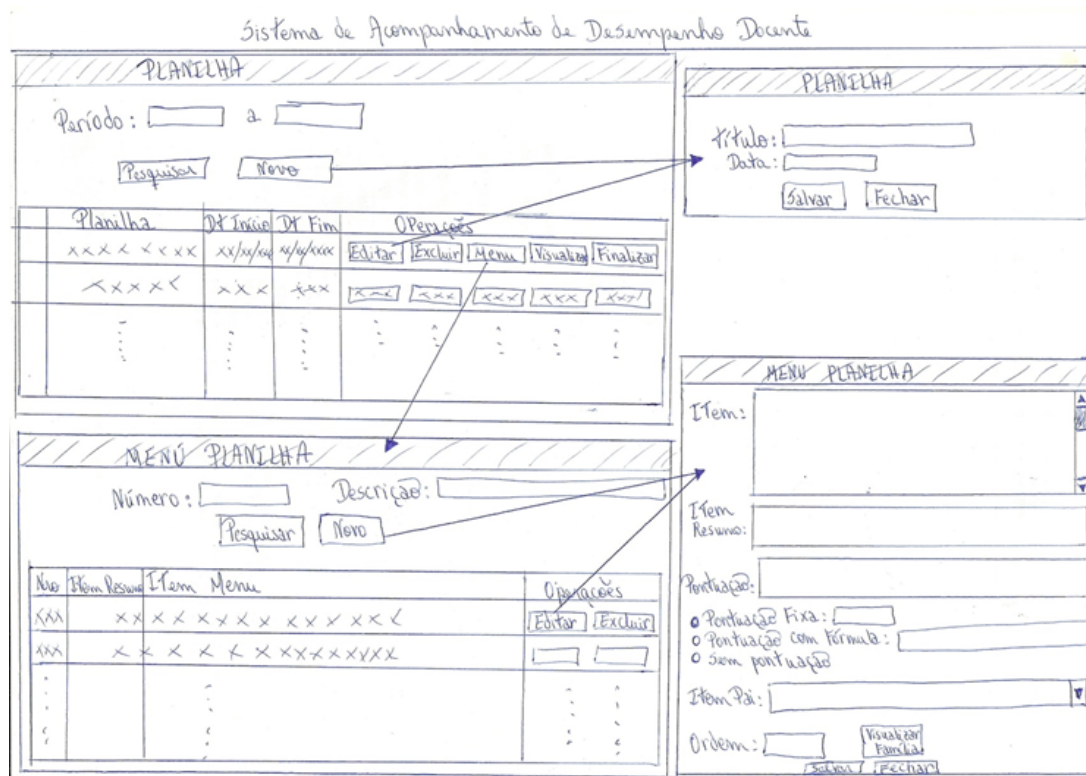 Sistema de Acompanhamento de Desempenho Docente
PLANILHA
Período: a
Pesquisar Novo
Planilha Dt Início Dt Fim Operações
xxxx xxxx xx/xx/xxx xx/xx/xxxx Editar Excluir Menu Visualizar Finalizar
xxxxx xxx xxx xxx xxx xxx xxx
PLANILHA
título:
Data:
Salvar Fechar
MENÚ PLANILHA
Número: Descrição:
Pesquisar Novo
Nro Item Resumo Item Menu Operações
xxx xx xxxxxx xxx xxx Editar Excluir
xxx x x x x x x xxxxxxxx
MENU PLANILHA
Item:
Item
Resumo:
Pontuação:
Pontuação Fixa:
Pontuação com Fórmula:
Sem pontuação
Item Pai:
Ordem: Visualizar
Família
Salvar Fechar